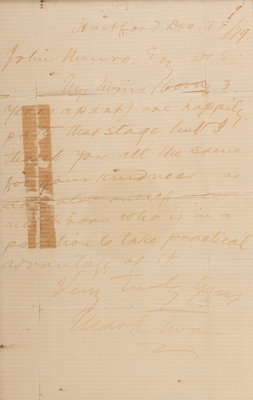 Hartford Dec
John Munro, Esq
My
years apart) are happily
past that stage, but I
thank you all the same
for your kindness &
who is in a
position to take practical
advantage of it
Very Truly Yours
Mark Twain